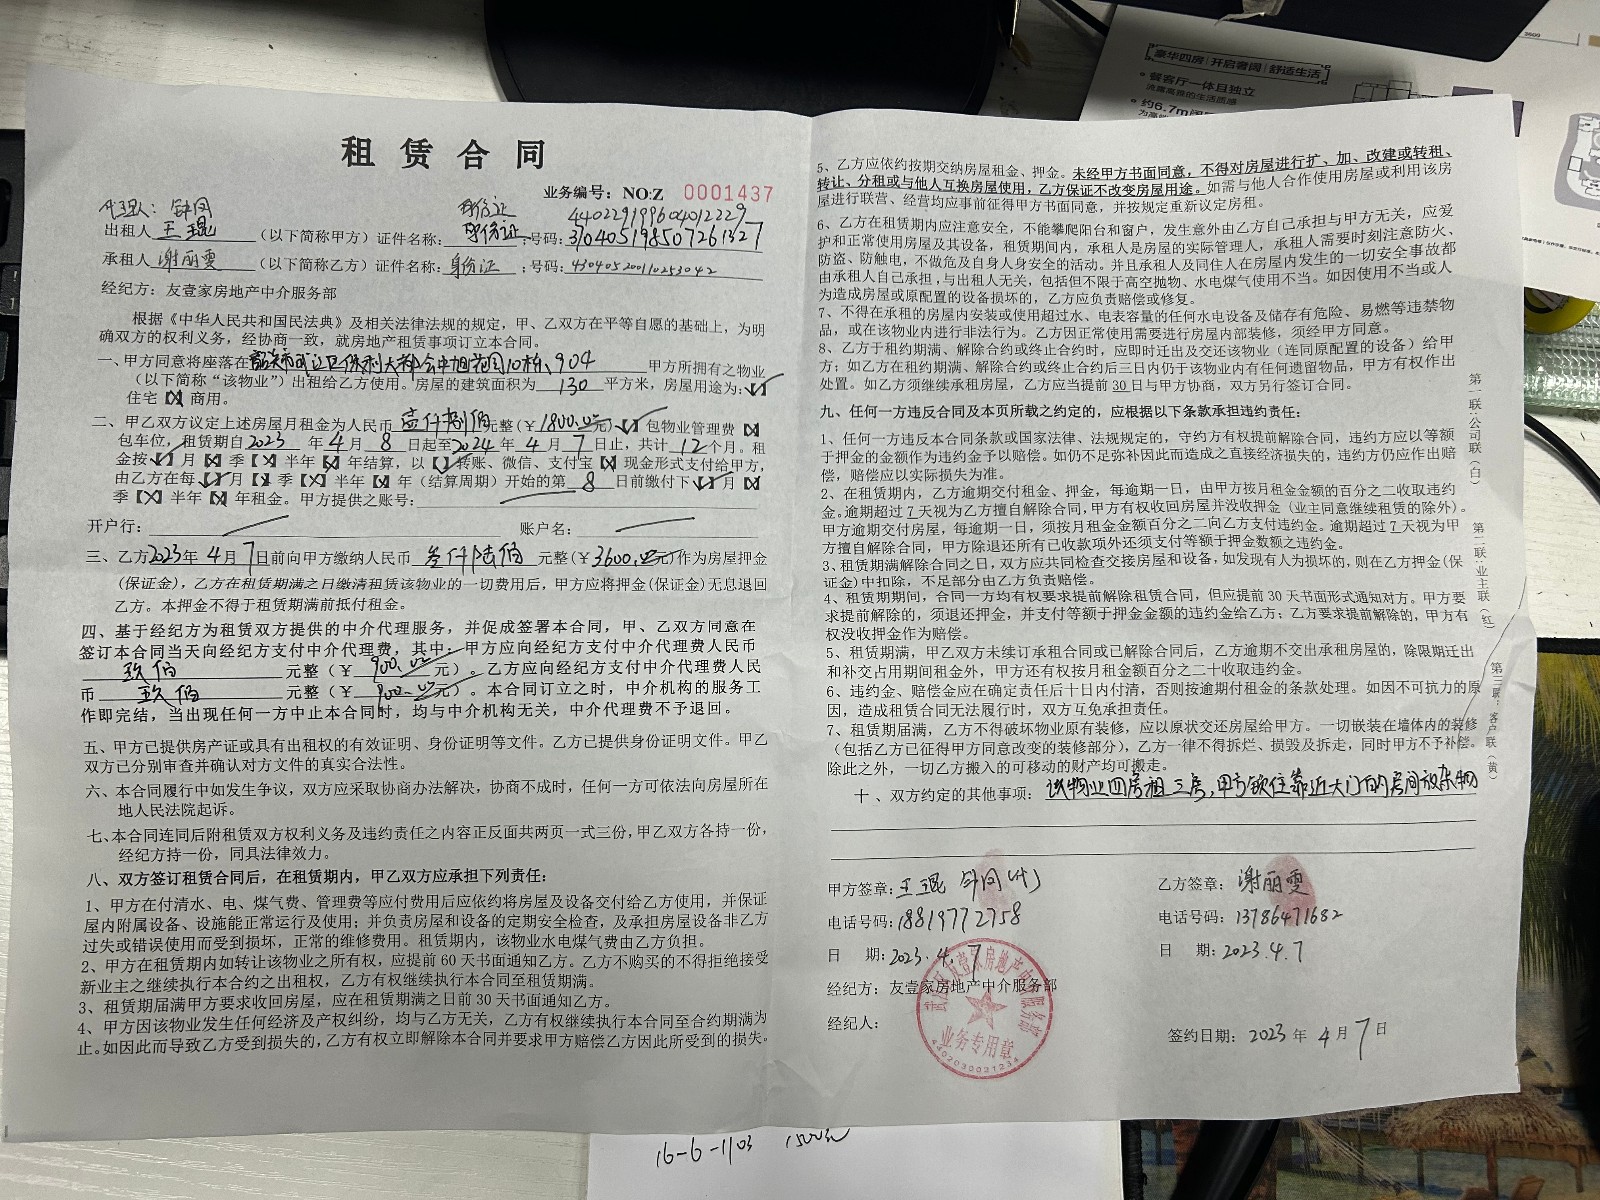 租赁合同
业务编号：NO:Z 0001437
代理人：
身份证 440229199604012229
出租人 王琨 （以下简称甲方）证件名称：身份证 ；号码：370405198507261327
承租人 谢丽雯 （以下简称乙方）证件名称：身份证 ；号码：430405200110253042
经纪方：友壹家房地产中介服务部
根据《中华人民共和国民法典》及相关法律法规的规定，甲、乙双方在平等自愿的基础上，为明
确双方的权利义务，经协商一致，就房地产租赁事项订立本合同。
一、甲方同意将座落在韶关市武江区保利大都会中旭花园10栋、904 甲方所拥有之物业
（以下简称“该物业”）出租给乙方使用。房屋的建筑面积为 130 平方米，房屋用途为：【√】
住宅【X】商用。
二、甲乙双方议定上述房屋月租金为人民币 壹仟捌佰 元整（￥1800.00元）【√】包物业管理费【X】
包车位，租赁期自2023 年 4 月 8 日起至2024 年 4 月 7 日止，共计 12 个月。租
金按【√】月【X】季【X】半年【X】年结算，以【√】转账、微信、支付宝【X】现金形式支付给甲方，
由乙方在每【√】月【X】季【X】半年【X】年（结算周期）开始的第 8 日前缴付下【√】月【X】
季【X】半年【X】年租金。甲方提供之账号：
开户行： 账户名：
三、乙方2023年 4月 7日前向甲方缴纳人民币 叁仟陆佰 元整（￥3600.00元）作为房屋押金
(保证金)，乙方在租赁期满之日缴清租赁该物业的一切费用后，甲方应将押金(保证金)无息退回
乙方。本押金不得于租赁期满前抵付租金。
四、基于经纪方为租赁双方提供的中介代理服务，并促成签署本合同，甲、乙双方同意在
签订本合同当天向经纪方支付中介代理费，其中：甲方应向经纪方支付中介代理费人民币
玖佰 元整（￥ 900.00元）。乙方应向经纪方支付中介代理费人民
币 玖佰 元整（￥ 900.00元）。本合同订立之时，中介机构的服务工
作即完结，当出现任何一方中止本合同时，均与中介机构无关，中介代理费不予退回。
五、甲方已提供房产证或具有出租权的有效证明、身份证明等文件。乙方已提供身份证明文件。甲乙
双方已分别审查并确认对方文件的真实合法性。
六、本合同履行中如发生争议，双方应采取协商办法解决，协商不成时，任何一方可依法向房屋所在
地人民法院起诉。
七、本合同连同后附租赁双方权利义务及违约责任之内容正反面共两页一式三份，甲乙双方各持一份，
经纪方持一份，同具法律效力。
八、双方签订租赁合同后，在租赁期内，甲乙双方应承担下列责任：
1、甲方在付清水、电、煤气费、管理费等应付费用后应依约将房屋及设备交付给乙方使用，并保证
屋内附属设备、设施能正常运行及使用；并负责房屋和设备的定期安全检查，及承担房屋设备非乙方
过失或错误使用而受到损坏，正常的维修费用。租赁期内，该物业水电煤气费由乙方负担。
2、甲方在租赁期内如转让该物业之所有权，应提前60天书面通知乙方。乙方不购买的不得拒绝接受
新业主之继续执行本合约之出租权，乙方有权继续执行本合同至租赁期满。
3、租赁期届满甲方要求收回房屋，应在租赁期满之日前30天书面通知乙方。
4、甲方因该物业发生任何经济及产权纠纷，均与乙方无关，乙方有权继续执行本合同至合约期满为
止。如因此而导致乙方受到损失的，乙方有权立即解除本合同并要求甲方赔偿乙方因此所受到的损失。
5、乙方应依约按期交纳房屋租金、押金。未经甲方书面同意，不得对房屋进行扩、加、改建或转租、
转让、分租或与他人互换房屋使用，乙方保证不改变房屋用途。如需与他人合作使用房屋或利用该房
屋进行联营、经营均应事前征得甲方书面同意，并按规定重新议定房租。
6、乙方在租赁期内应注意安全，不能攀爬阳台和窗户，发生意外由乙方自己承担与甲方无关，应爱
护和正常使用房屋及其设备，租赁期间内，承租人是房屋的实际管理人，承租人需要时刻注意防火、
防盗、防触电，不做危及自身人身安全的活动。并且承租人及同住人在房屋内发生的一切安全事故都
由承租人自己承担，与出租人无关，包括但不限于高空抛物、水电煤气使用不当。如因使用不当或人
为造成房屋或原配置的设备损坏的，乙方应负责赔偿或修复。
7、不得在承租的房屋内安装或使用超过水、电表容量的任何水电设备及储存有危险、易燃等违禁物
品，或在该物业内进行非法行为。乙方因正常使用需要进行房屋内部装修，须经甲方同意。
8、乙方于租约期满、解除合约或终止合约时，应即时迁出及交还该物业（连同原配置的设备）给甲
方；如乙方在租约期满、解除合约或终止合约后三日内仍于该物业内有任何遗留物品，甲方有权作出
处置。如乙方须继续承租房屋，乙方应当提前30日与甲方协商，双方另行签订合同。
九、任何一方违反合同及本页所载之约定的，应根据以下条款承担违约责任：
1、任何一方违反本合同条款或国家法律、法规规定的，守约方有权提前解除合同，违约方应以等额
于押金的金额作为违约金予以赔偿。如仍不足弥补因此而造成之直接经济损失的，违约方仍应作出赔
偿，赔偿应以实际损失为准。
2、在租赁期内，乙方逾期交付租金、押金，每逾期一日，由甲方按月租金金额的百分之二收取违约
金。逾期超过7天视为乙方擅自解除合同，甲方有权收回房屋并没收押金（业主同意继续租赁的除外）。
甲方逾期交付房屋，每逾期一日，须按月租金金额百分之二向乙方支付违约金。逾期超过7天视为甲
方擅自解除合同，甲方除退还所有已收款项外还须支付等额于押金数额之违约金。
3、租赁期满解除合同之日，双方应共同检查交接房屋和设备，如发现有人为损坏的，则在乙方押金(保
证金)中扣除，不足部分由乙方负责赔偿。
4、租赁期期间，合同一方均有权要求提前解除租赁合同，但应提前30天书面形式通知对方。甲方要
求提前解除的，须退还押金，并支付等额于押金金额的违约金给乙方；乙方要求提前解除的，甲方有
权没收押金作为赔偿。
5、租赁期满，甲乙双方未续订承租合同或已解除合同后，乙方逾期不交出承租房屋的，除限期迁出
和补交占用期间租金外，甲方还有权按月租金额百分之二十收取违约金。
6、违约金、赔偿金应在确定责任后十日内付清，否则按逾期付租金的条款处理。如因不可抗力的原
因，造成租赁合同无法履行时，双方互免承担责任。
7、租赁期届满，乙方不得破坏物业原有装修，应以原状交还房屋给甲方。一切嵌装在墙体内的装修
（包括乙方已征得甲方同意改变的装修部分），乙方一律不得拆烂、损毁及拆走，同时甲方不予补偿。
除此之外，一切乙方搬入的可移动的财产均可搬走。
十、双方约定的其他事项：该物业四房租三房，甲方锁住靠近大门的房间放杂物
第一联：公司联（白）
第二联：业主联（红）
第三联：客户联（黄）
甲方签章：王琨
电话号码：18819772758
日 期：2023.4.7
经纪方：友壹家房地产中介服务部
经纪人：
乙方签章：谢丽雯
电话号码：13786471682
日 期：2023.4.7
签约日期：2023 年 4 月 7 日
业务专用章
4402030021234
16-6-1103 1500元
豪华四房 开启奢阔 舒适生活
餐客厅一体且独立
约6.7m